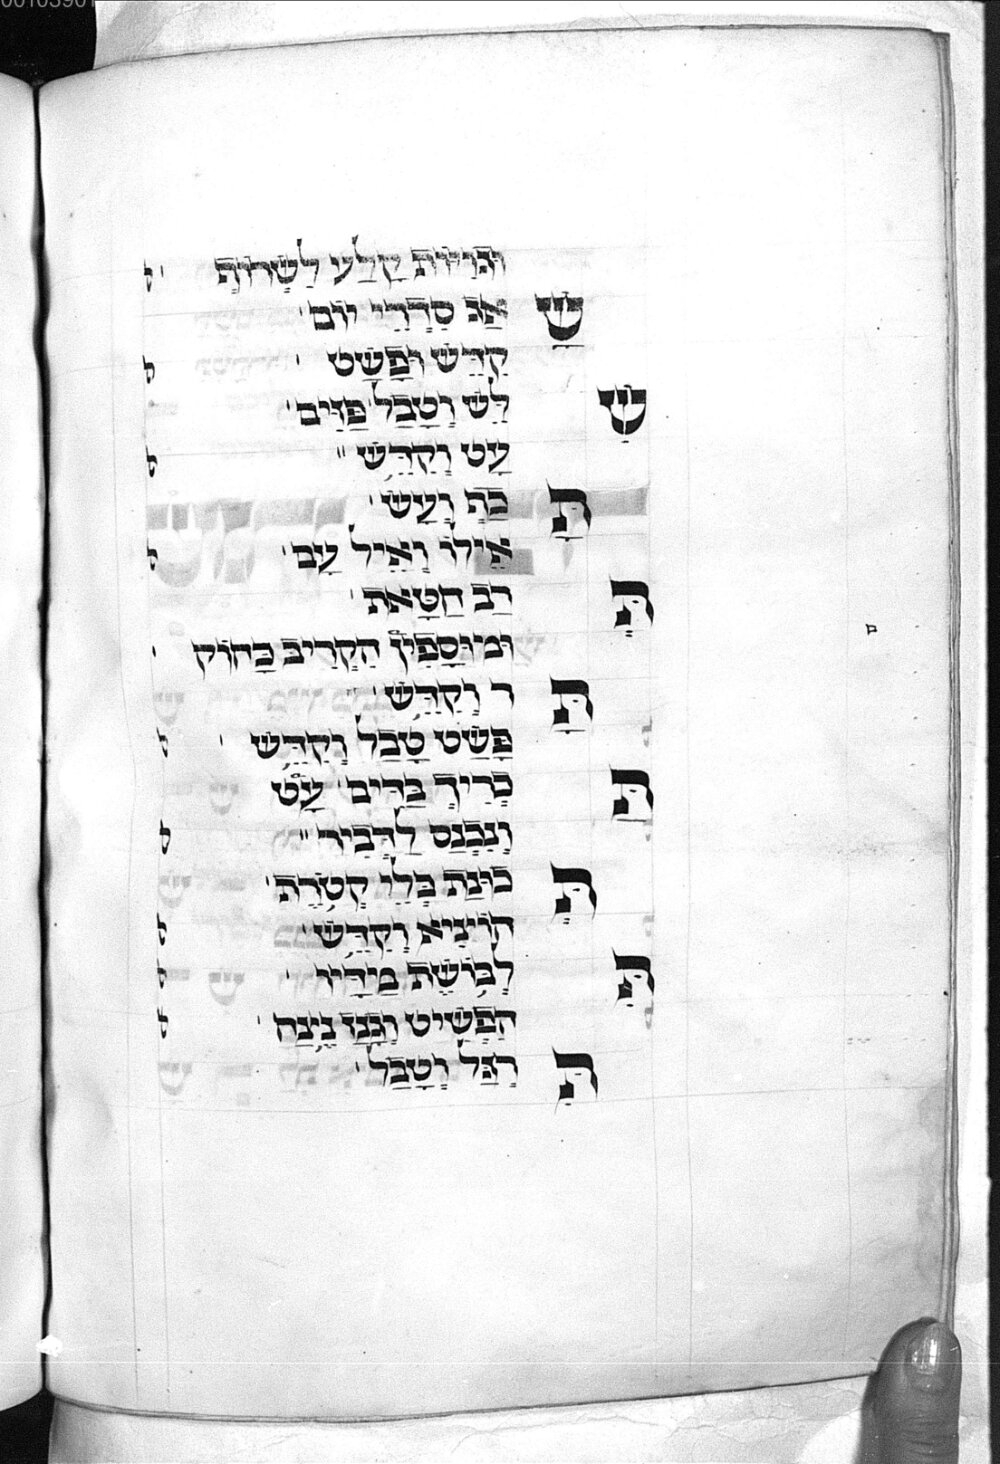 וּגְוִיּוֹת קָלַע לִשְׂרוֹף ׳ ל
שָׁ אַג סִדְרֵי יוֹם ׳
קִדֵּשׁ וּפָשַׁט ׳ ל
שָׁ לֵשׁ וְטָבַל פַּזִּים ׳
עָט וְקִדֵּשׁ ״ ל
תָּ כַּת וְעָשׂ ׳
אֵילוֹ וְאֵיל עָם ׳ ל
תָּ רַב חַטָּאת ׳
וּמוּסָפִין הִקְרִיב כָּחוֹק ׳
תָּ ר וְקִדֵּשׁ ׳
פָּשַׁט טָבַל וְקִדֵּשׁ ׳ ל
תָּ כְרִיךְ בַּדִּים עָט
וְנִכְנַס לַדְּבִיר ״ ל
תָּ כוּנַת כְּלֵי קְטֹרֶת ׳
הוֹצִיא וְקִדֵּשׁ ׳ ל
תִּ לְבּוֹשֶׁת מַדָּיו ׳ ל
הִפְשִׁיט וְגָנַז נֶצַח ׳ ל
תִּ רְגַּל וְטָבַל ׳